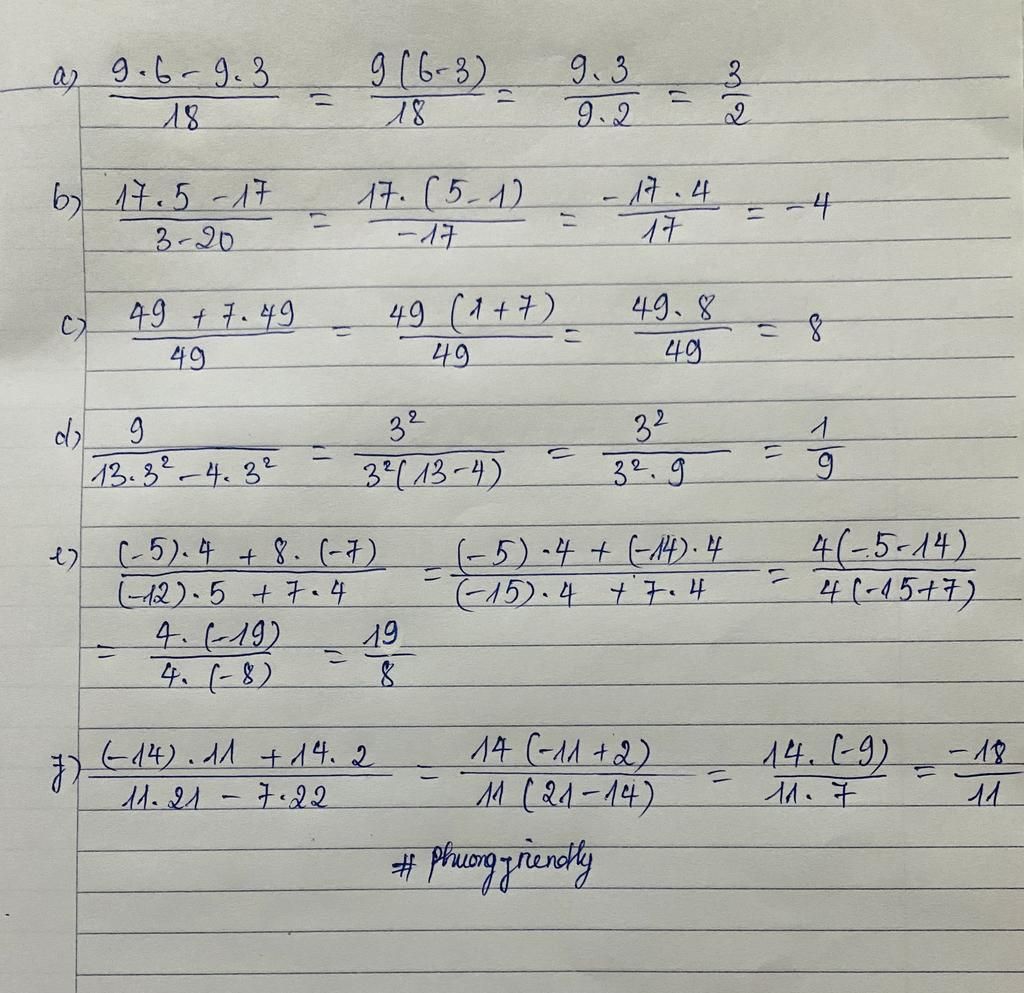 a) (9·6 - 9·3)/18 = 9(6-3)/18 = (9·3)/(9·2) = 3/2
b) (17·5 - 17)/(3-20) = 17·(5-1)/(-17) = (-17·4)/17 = -4
c) (49 + 7·49)/49 = 49(1+7)/49 = (49·8)/49 = 8
d) 9/(13·3² - 4·3²) = 3²/(3²(13-4)) = 3²/(3²·9) = 1/9
e) ((-5)·4 + 8·(-7))/((-12)·5 + 7·4) = ((-5)·4 + (-14)·4)/((-15)·4 + 7·4) = 4(-5-14)/(4(-15+7))
= (4·(-19))/(4·(-8)) = 19/8
f) ((-14)·11 + 14·2)/(11·21 - 7·22) = 14(-11+2)/(11(21-14)) = (14·(-9))/(11·7) = -18/11
# phuongfriendly